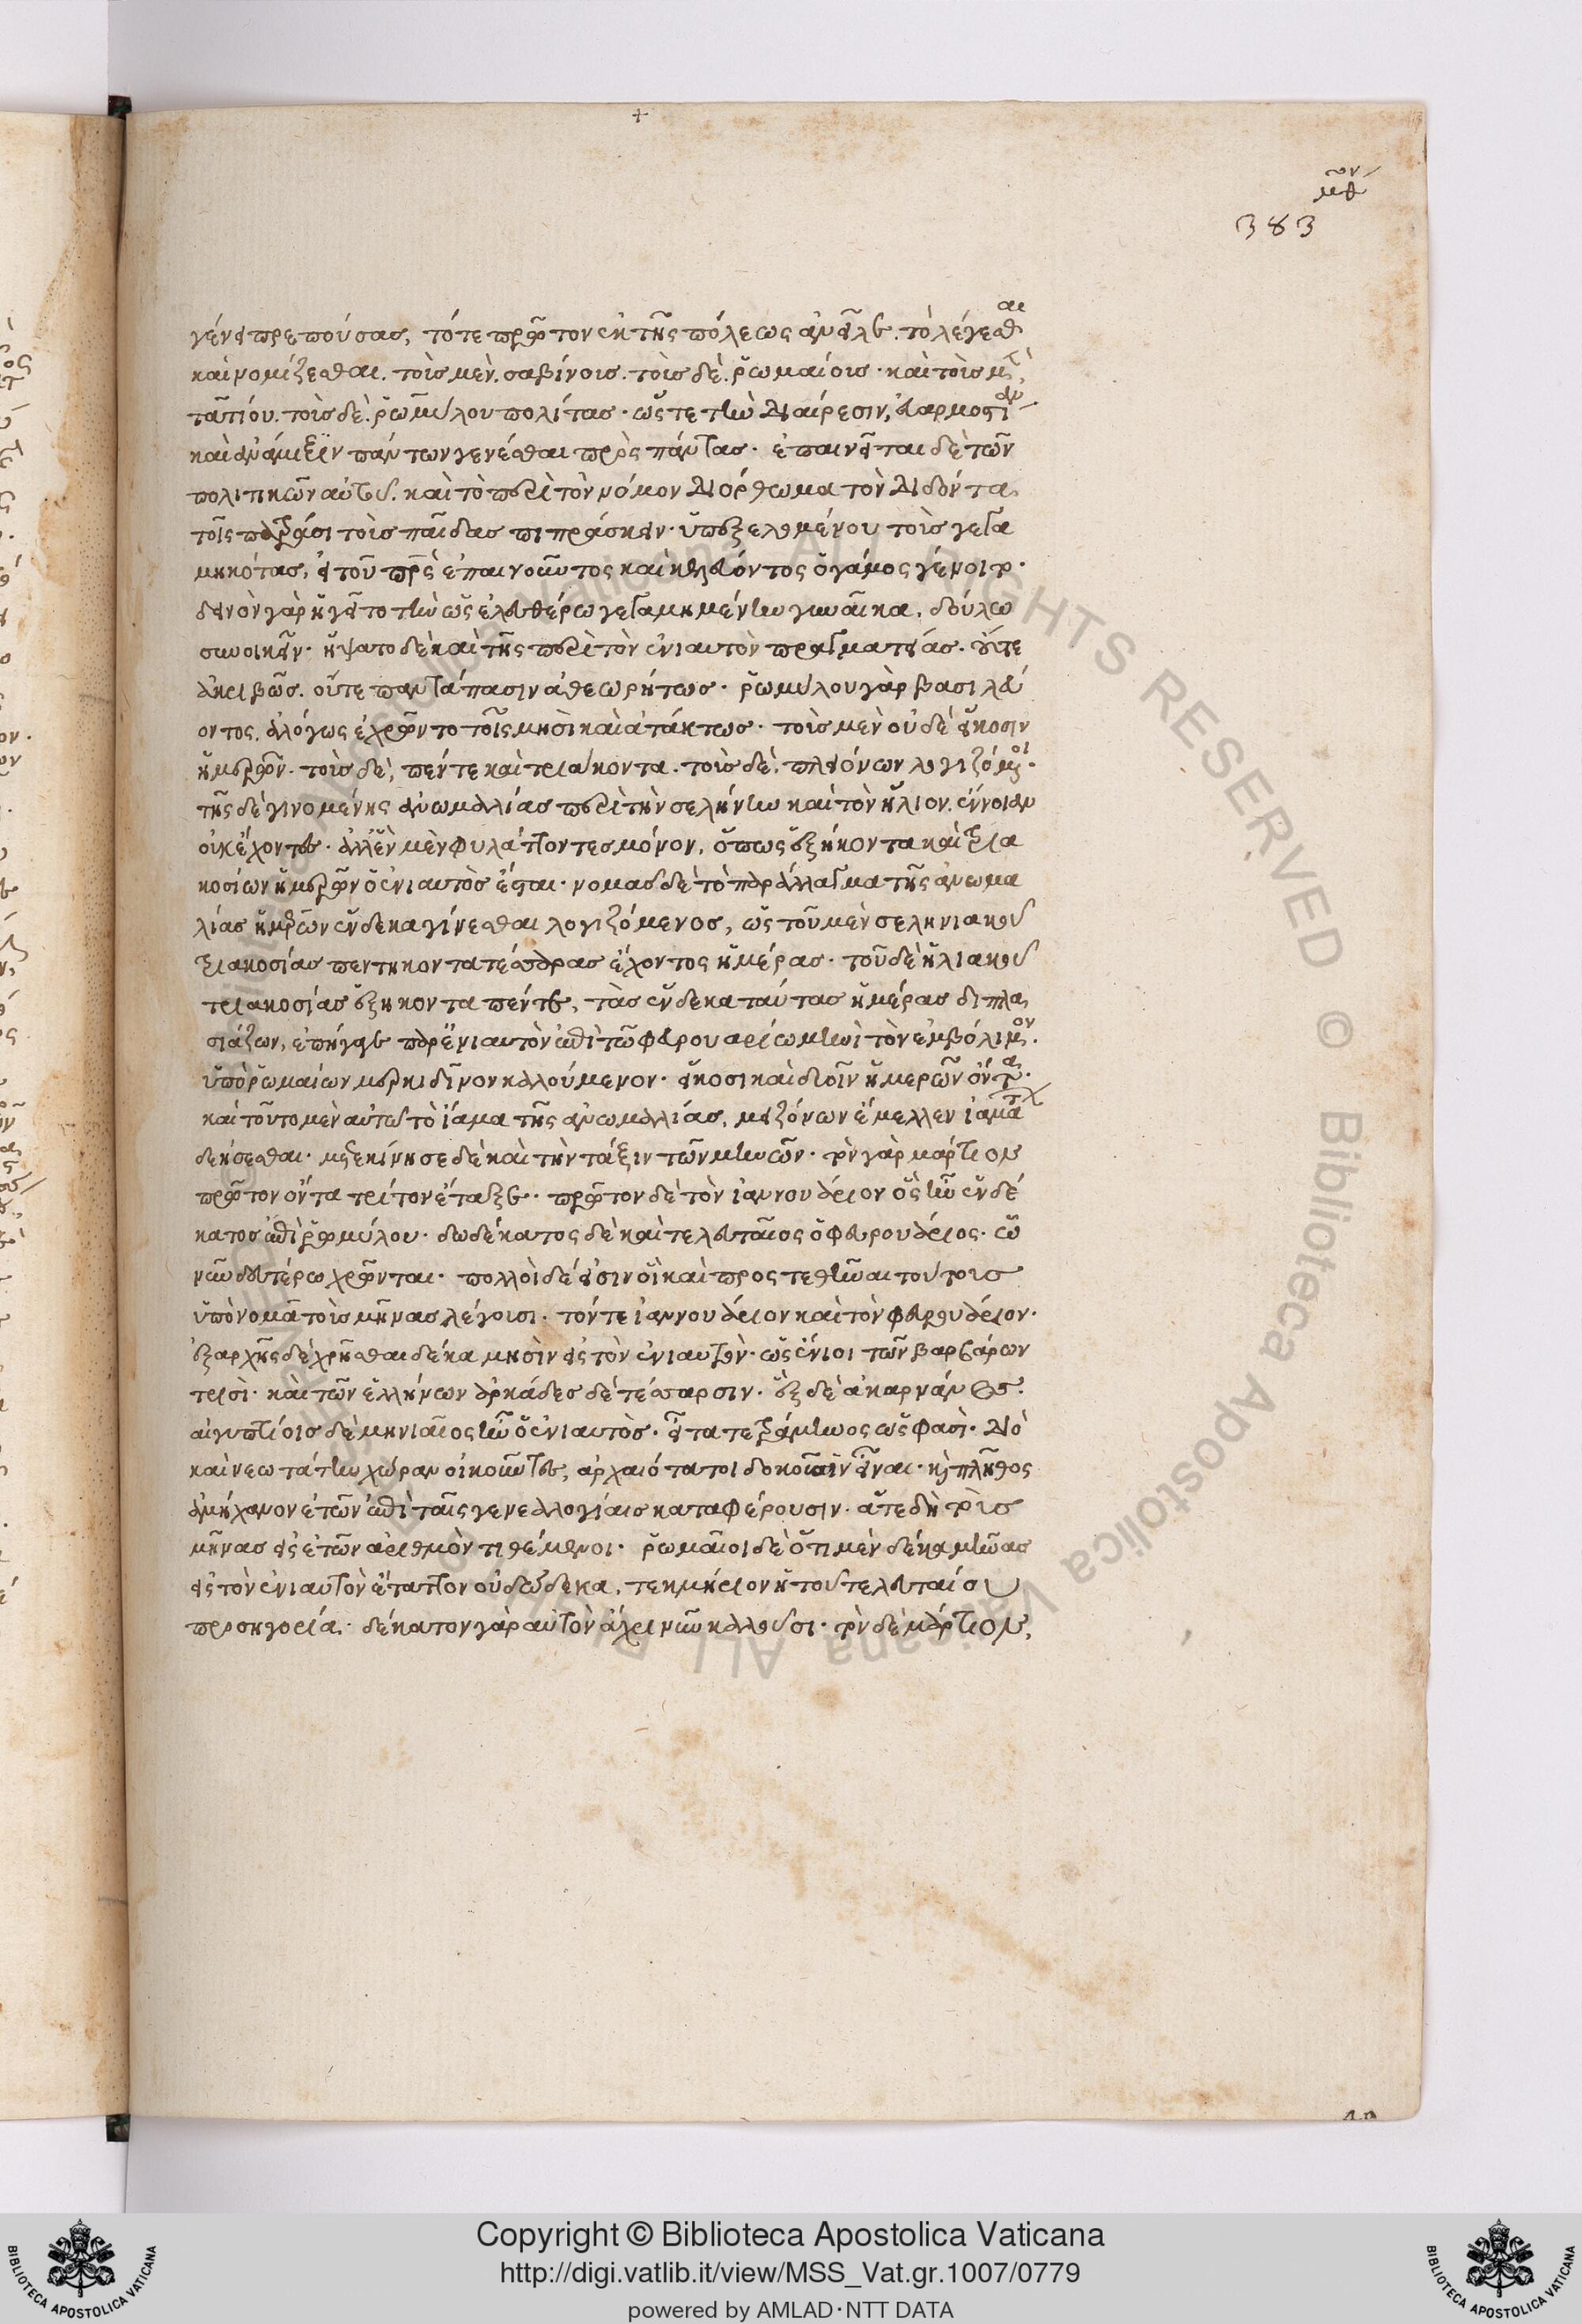 +
μθον
383
γένει πρεπούσας, τότε πρῶτον ἐκ τῆς πόλεως ἀνεῖλε τὸ λέγεσθαι
καὶ νομίζεσθαι. τοὺς μὲν. σαβίνους. τοὺς δὲ. ῥωμαίους. καὶ τοὺς μὲν,
τατίου. τοὺς δὲ. ῥωμύλου πολίτας. ὥστε τὴν διαίρεσιν, εὐαρμοστίαν
καὶ ἀνάμιξιν πάντων γενέσθαι πρὸς πάντας. ἐπαινεῖται δὲ τῶν
πολιτικῶν αὐτοῦ. καὶ τὸ περὶ τὸν νόμον διόρθωμα τὸν διδόντα
τοῖς πατράσι τοὺς παῖδας πιπράσκειν. ὑπεξελομένου τοὺς γεγα
μηκότας, εἰ τοῦ πατρὸς ἐπαινοῦντος καὶ κελεύοντος ὁ γάμος γένοιτο.
δεινὸν γὰρ ἡγεῖτο τὴν ὡς ἐλευθέρω γεγαμημένην γυναῖκα, δούλω
συνοικεῖν. ἥψατο δὲ καὶ τῆς περὶ τὸν ἐνιαυτὸν πραγματείας. οὔτε
ἀκριβῶς. οὔτε παντάπασιν ἀθεωρήτως. ῥωμύλου γὰρ βασιλεύ
οντος, ἀλόγως ἐχρῶντο τοῖς μησὶ καὶ ἀτάκτως. τοὺς μὲν οὐδὲ εἴκοσιν
ἡμερῶν. τοὺς δὲ, πέντε καὶ τριάκοντα. τοὺς δὲ, πλειόνων λογιζόμενοι.
τῆς δὲ γινομένης ἀνωμαλίας περὶ τὴν σελήνην καὶ τὸν ἥλιον, ἔννοιαν
οὐκ ἔχοντες. ἀλλ' ἓν μὲν φυλάττοντες μόνον, ὅπως ἑξήκοντα καὶ τρια
κοσίων ἡμερῶν ὁ ἐνιαυτὸς ἔσται. νομᾶς δὲ τὸ παράλλαγμα τῆς ἀνωμα
λίας ἡμερῶν ἕνδεκα γίνεσθαι λογιζόμενος, ὡς τοῦ μὲν σεληνιακοῦ
τριακοσίας πεντήκοντα τέσσαρας ἔχοντος ἡμέρας. τοῦ δὲ ἡλιακοῦ
τριακοσίας ἑξήκοντα πέντε, τὰς ἕνδεκα ταύτας ἡμέρας διπλα
σιάζων, ἐπήγαγε παρ' ἐνιαυτὸν ἐπὶ τῶ φεβρουαρίω μηνὶ τὸν ἐμβόλιμον.
ὑπὸ ῥωμαίων μερκιδῖνον καλούμενον. εἴκοσι καὶ δυοῖν ἡμερῶν ὄντα.
καὶ τοῦτο μὲν αὐτῶ τὸ ἴαμα τῆς ἀνωμαλίας, μειζόνων ἔμελλεν ἰαμάτων
δεήσεσθαι. μετεκίνησε δὲ καὶ τὴν τάξιν τῶν μηνῶν. τὸν γὰρ μάρτιον
πρῶτον ὄντα τρίτον ἔταξε. πρῶτον δὲ τὸν ἰαννουάριον ὃς ἦν ἑνδέ
κατος ἐπὶ ῥωμύλου. δωδέκατος δὲ καὶ τελευταῖος ὁ φεβρουάριος. ὧ
νῦν δευτέρω χρῶνται. πολλοὶ δέ εἰσιν οἳ καὶ προστεθῆναι τούτους
ὑπὸ νομᾶ τοὺς μῆνας λέγουσι. τόν τε ἰαννουάριον καὶ τὸν φεβρουάριον.
ἐξ ἀρχῆς δὲ χρῆσθαι δέκα μησὶν εἰς τὸν ἐνιαυτὸν. ὡς ἔνιοι τῶν βαρβάρων
τρισὶ. καὶ τῶν ἑλλήνων ἀρκάδες δὲ τέσσαρσιν. ἓξ δὲ ἀκαρνᾶνες.
αἰγυπτίοις δὲ μηνιαῖος ἦν ὁ ἐνιαυτὸς. εἶτα τετράμηνος ὥς φασὶ. διὸ
καὶ νεωτάτην χώραν οἰκοῦντες, ἀρχαιότατοι δοκοῦσιν εἶναι. καὶ πλῆθος
ἀμήχανον ἐτῶν ἐπὶ ταῖς γενεαλογίαις καταφέρουσιν. ἅτε δὴ τοὺς
μῆνας εἰς ἐτῶν ἀριθμὸν τιθέμενοι. ῥωμαῖοι δὲ ὅτι μὲν δέκα μῆνας
εἰς τὸν ἐνιαυτὸν ἔταττον οὐ δώδεκα, τεκμήριον ἡ τοῦ τελευταίου
προσηγορία. δέκατον γὰρ αὐτὸν ἄχρι νῦν καλοῦσι. τὸν δὲ μάρτιον,
Copyright © Biblioteca Apostolica Vaticana
http://digi.vatlib.it/view/MSS_Vat.gr.1007/0779
powered by AMLAD·NTT DATA
BIBLIOTECA APOSTOLICA VATICANA
BIBLIOTECA APOSTOLICA VATICANA